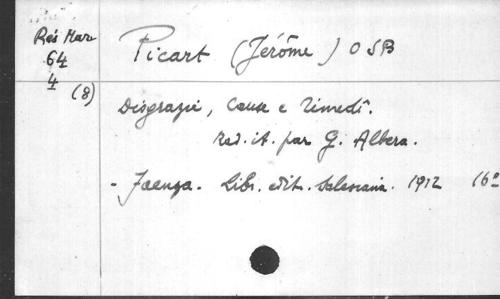 Rés Mar
64
4
(8)
Picart (Jérôme) OSB
Disgrazie, Cause e Rimedî.
Red. it. par G. Albera.
- Faenza. Libr. edit. Salesiana. 1912 16°